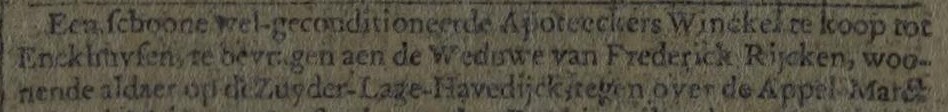 Een schoone wel-geconditioneerde Apoteeckers Winckel te koop tot
Enckhuysen, te bevragen aen de Weduwe van Frederick Rijcken, woo-
nende aldaer op de Zuyder-Lage-Havedijck, tegen over de Appel-Marct